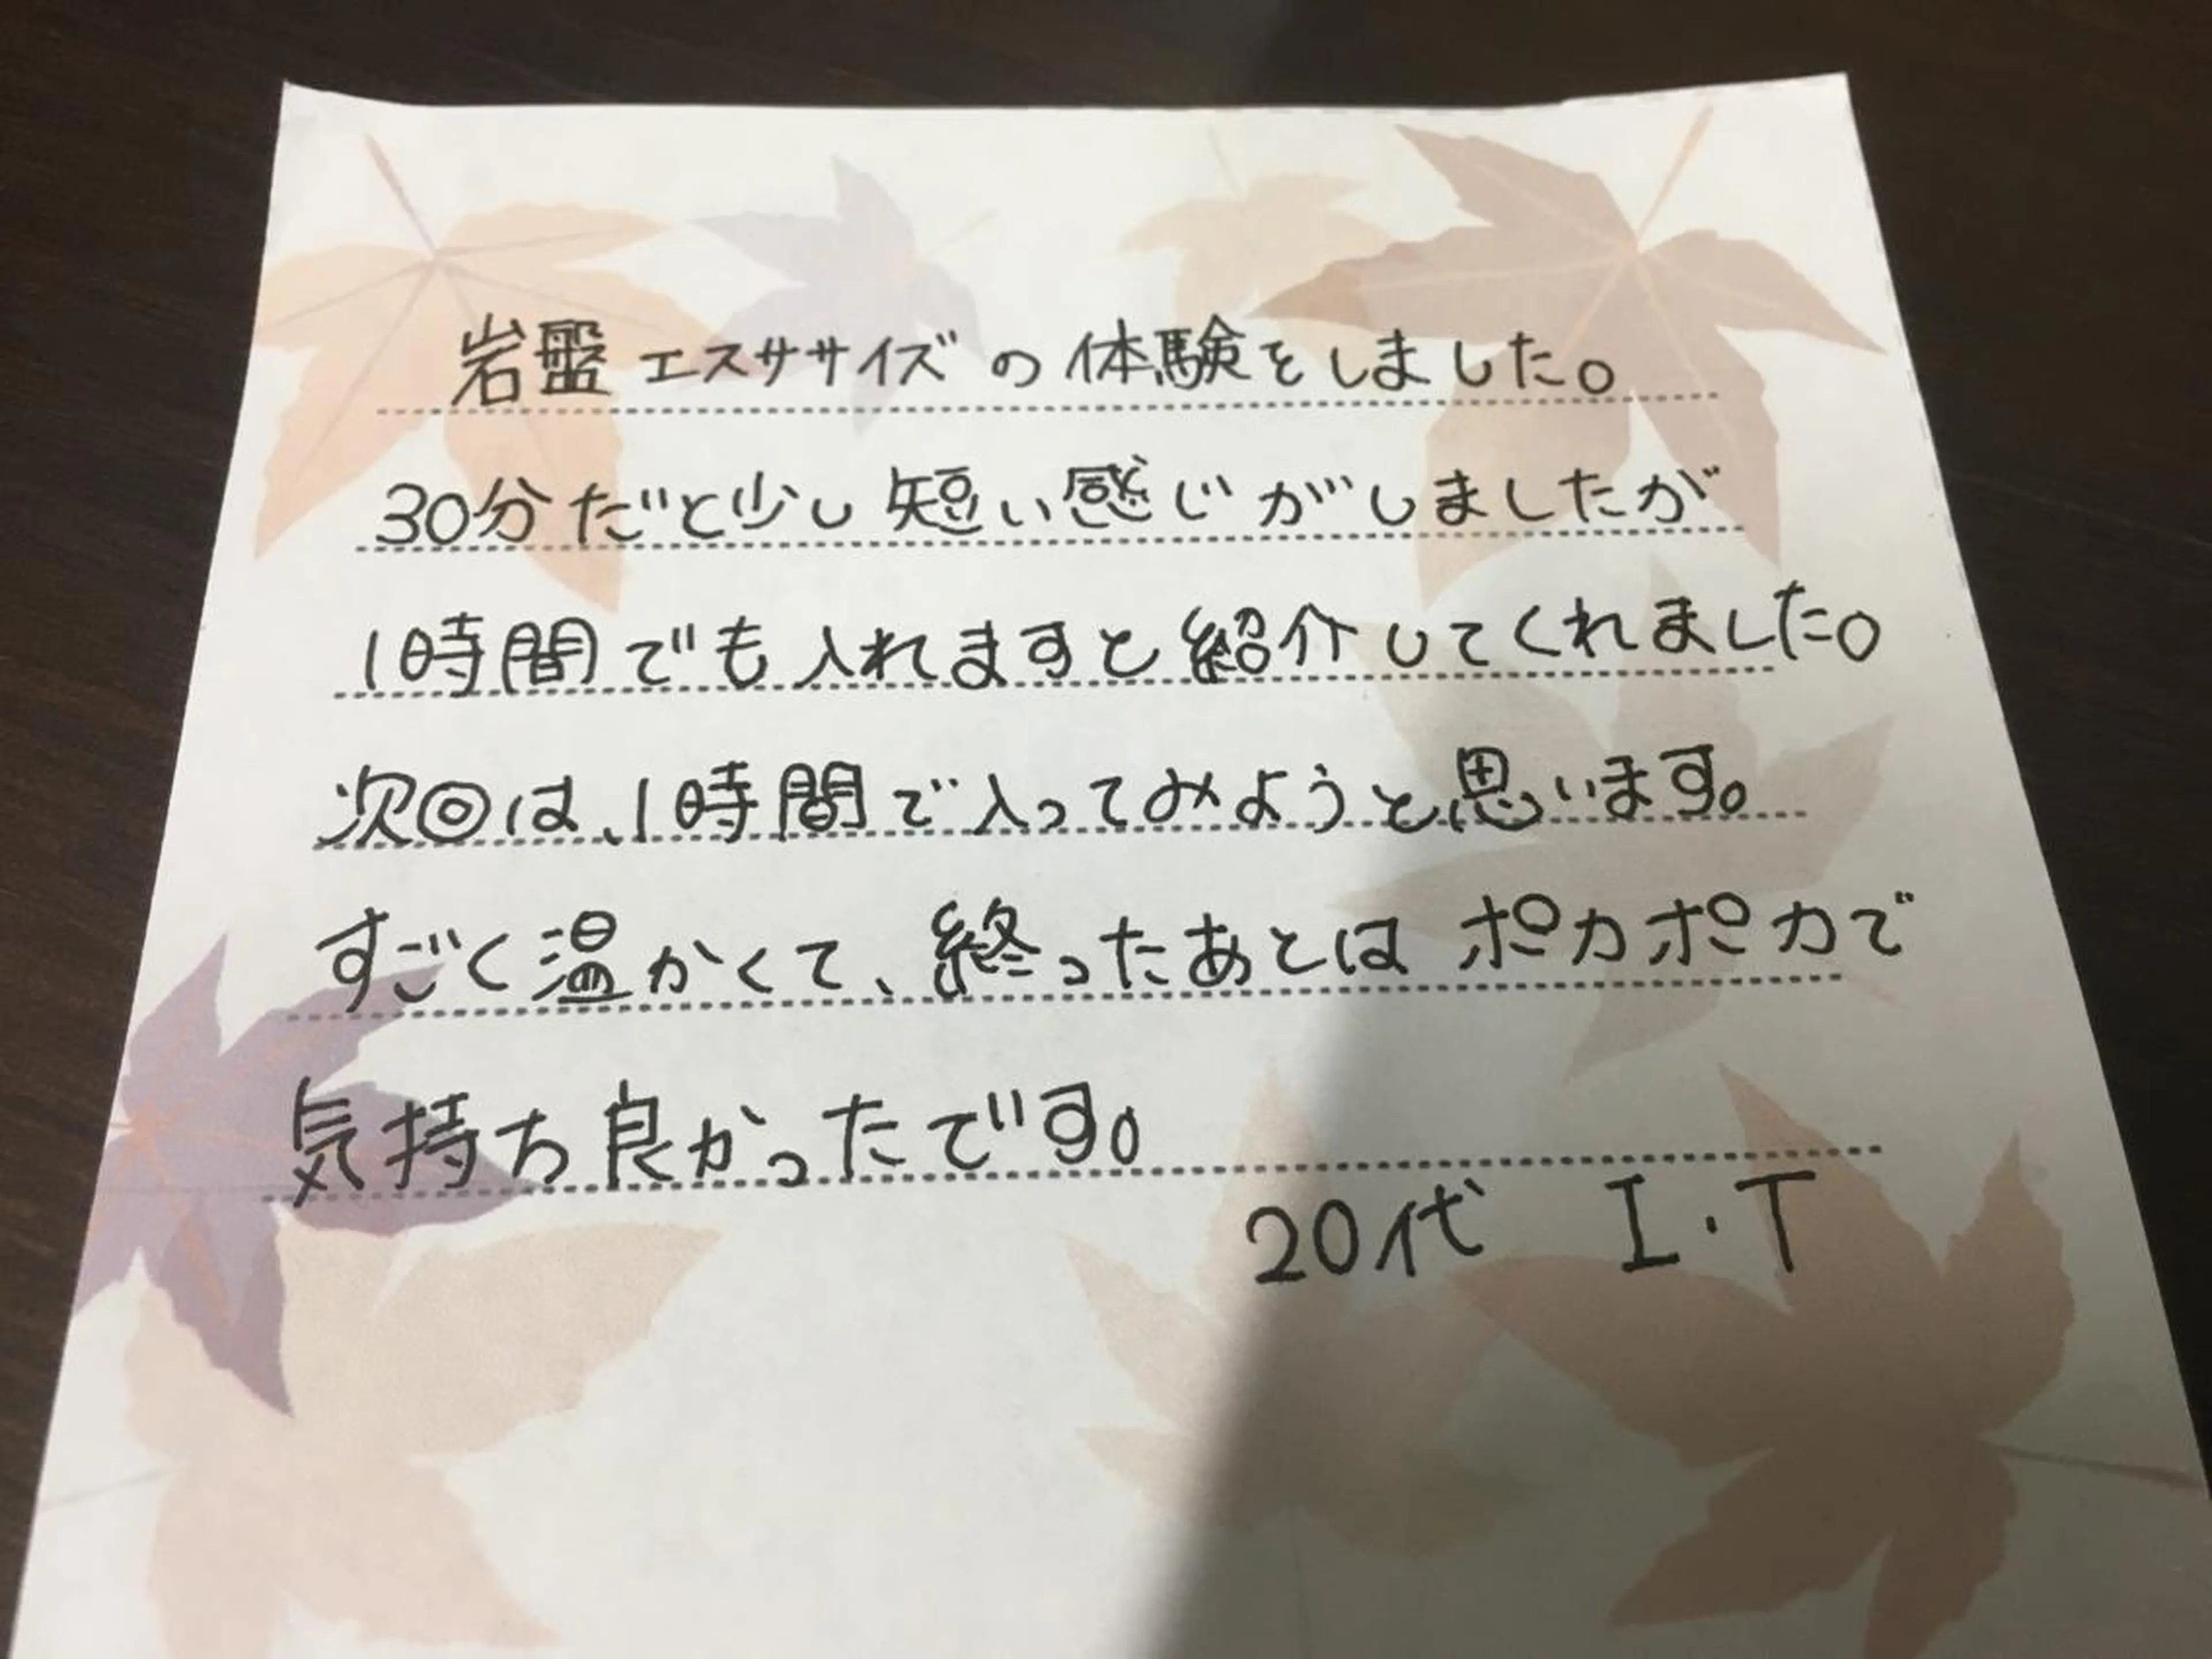 岩盤エスササイズの体験をしました。
30分だと少し短い感じがしましたが
1時間でも入れますと紹介してくれました。
次回は、1時間で入ってみようと思います。
すごく温かくて、終ったあとはポカポカで
気持ち良かったです。
20代 I・T